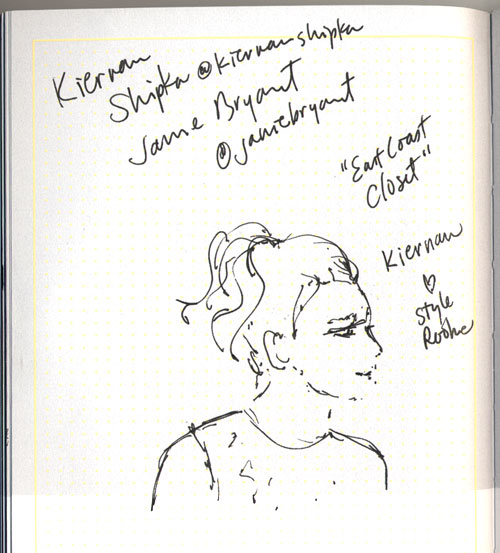 Kiernan
Shipka @kiernanshipka
Janie Bryant
@janiebryant
"East Coast
Closet"
Kiernan
♡
Style
Rookie